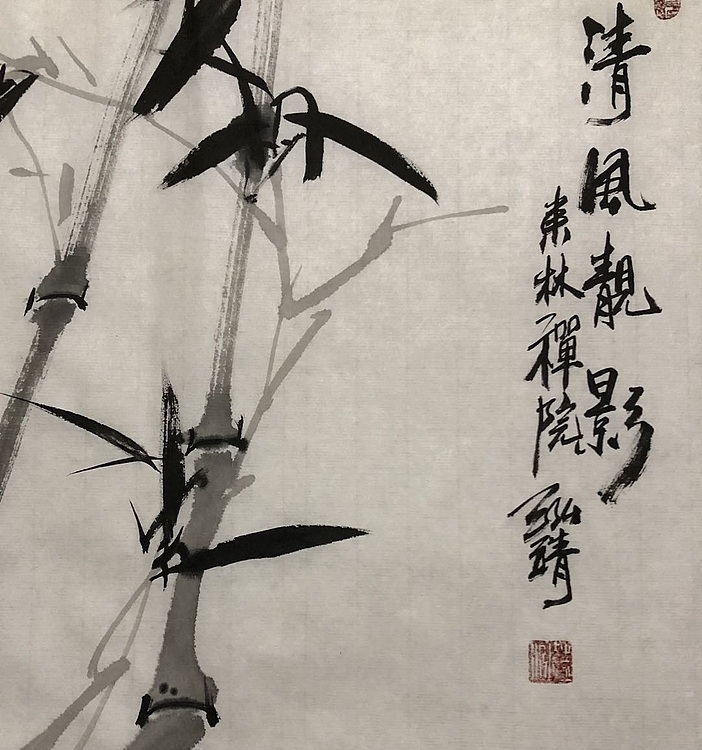 清風靚影
東林禪院